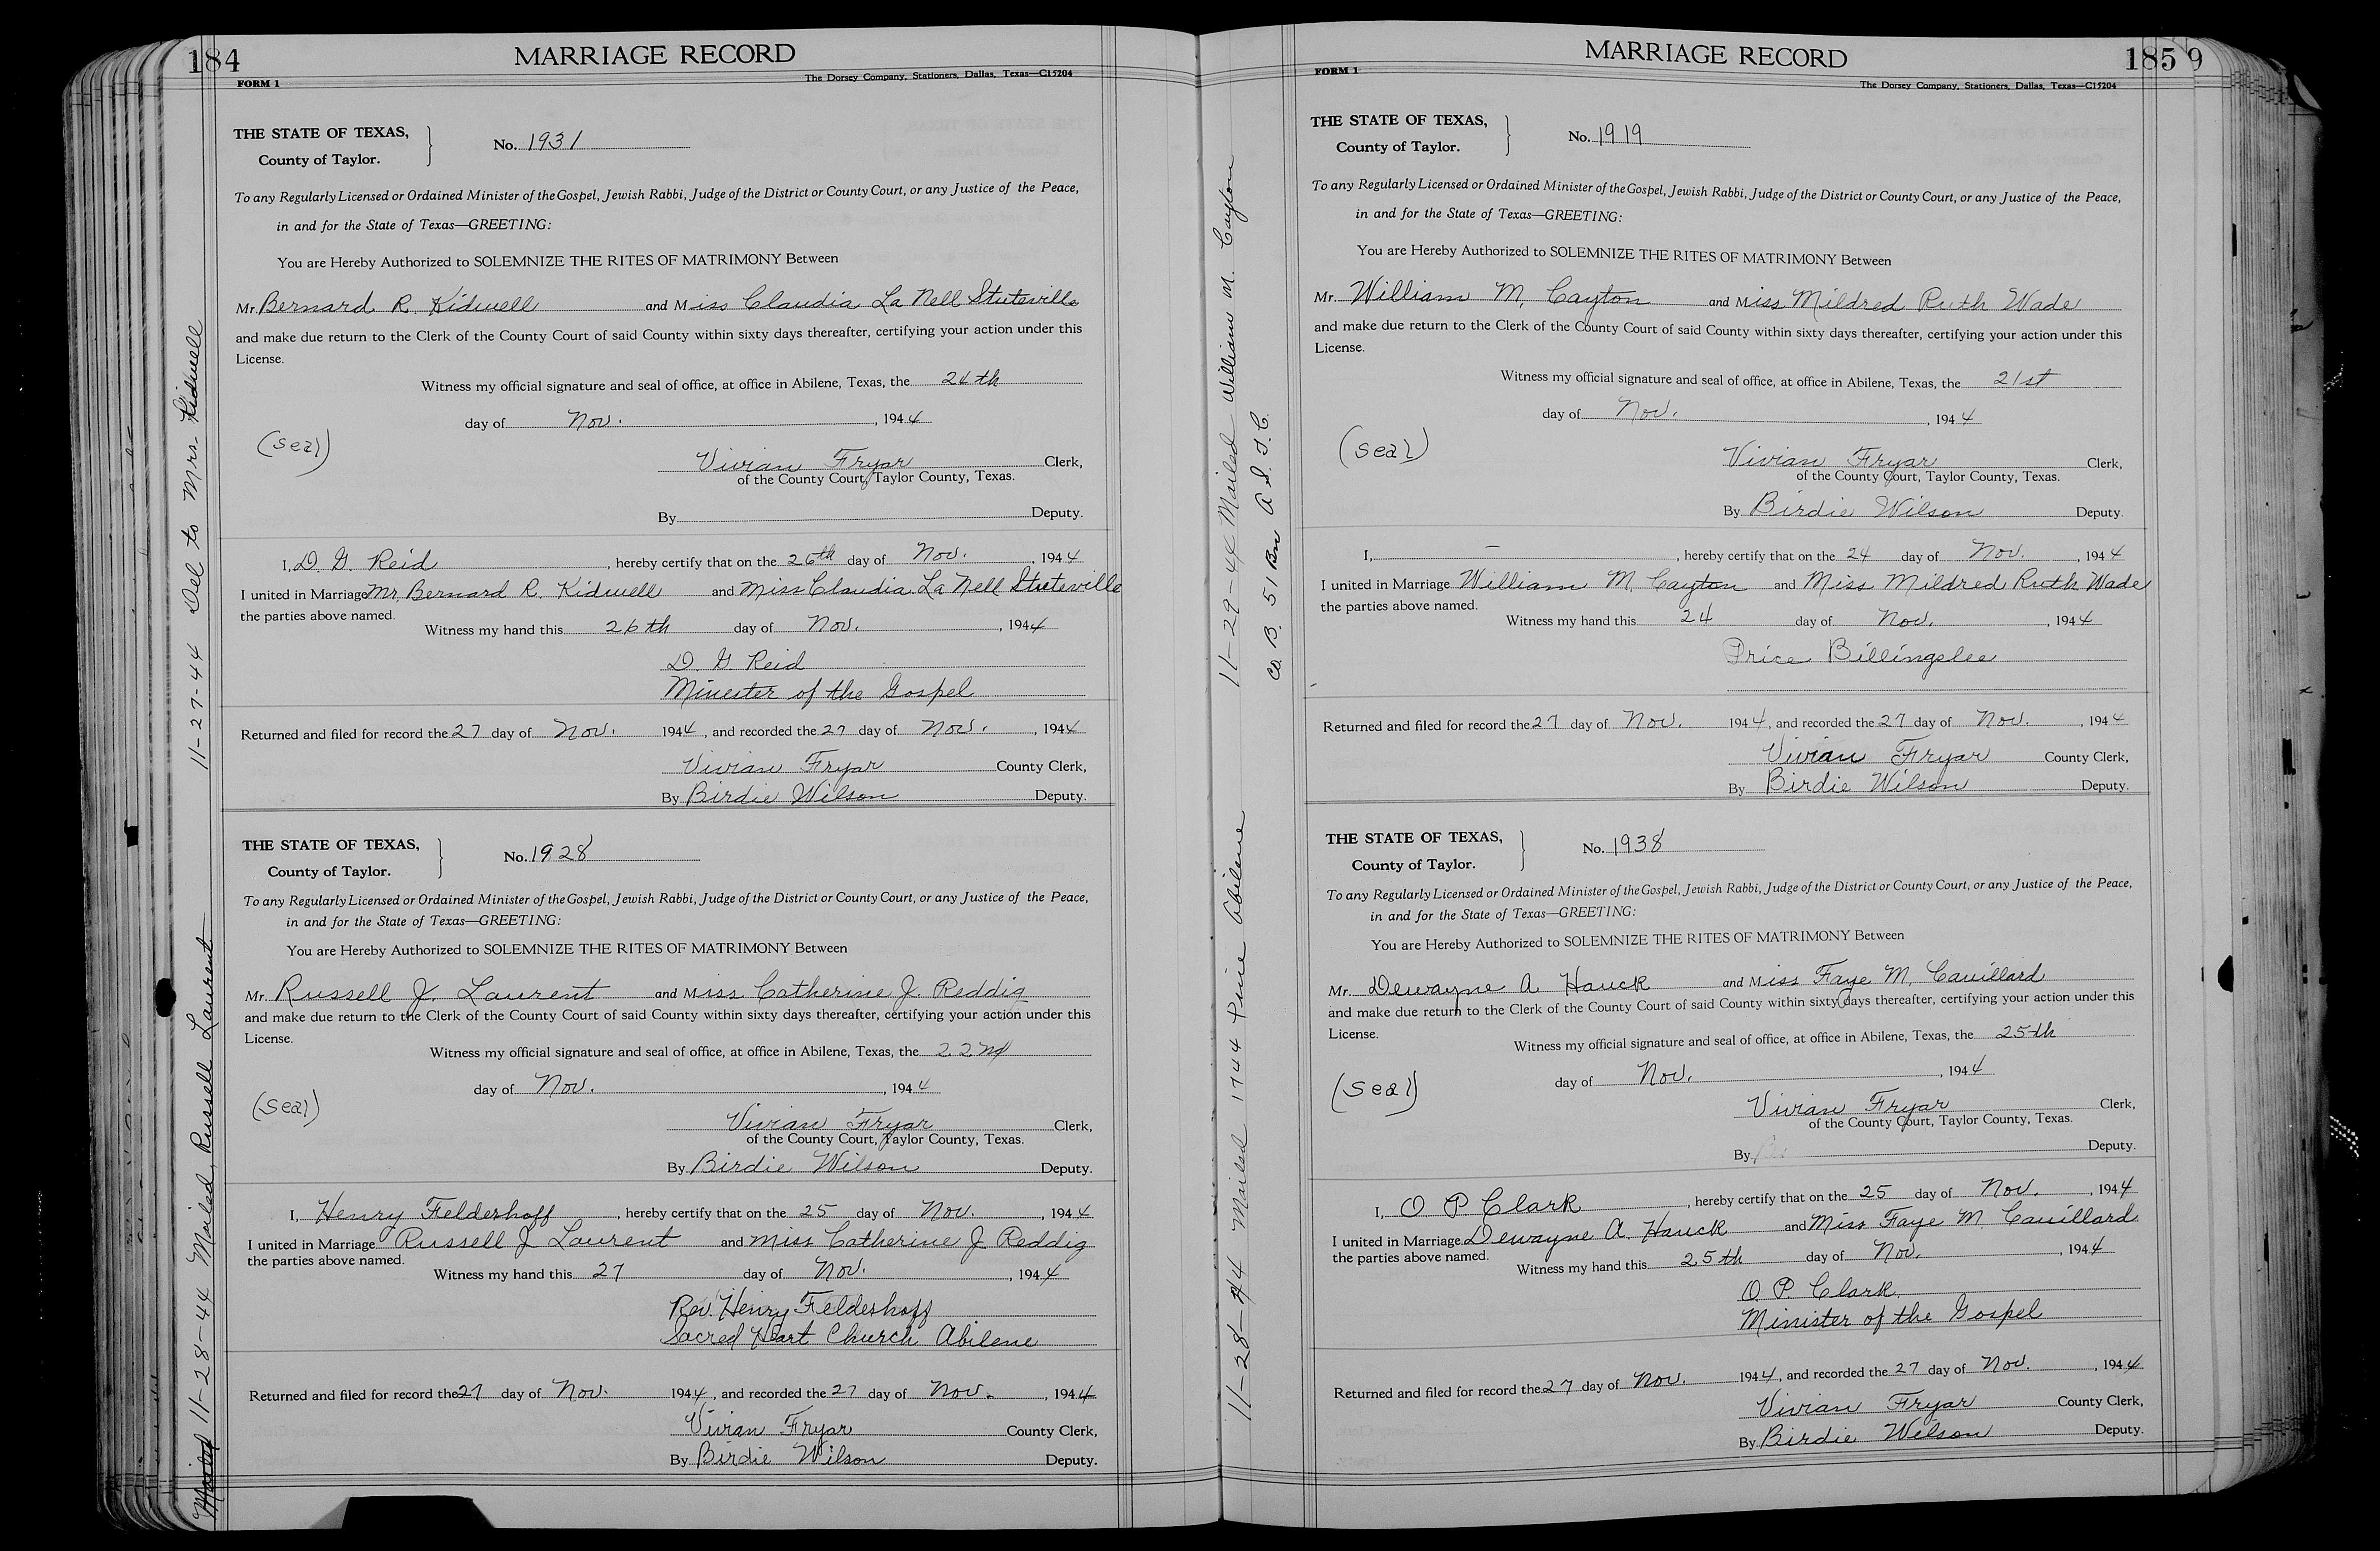 184
MARRIAGE RECORD
FORM 1
The Dorsey Company, Stationers, Dallas, Texas—C15204
THE STATE OF TEXAS,
County of Taylor.
No. 1931
To any Regularly Licensed or Ordained Minister of the Gospel, Jewish Rabbi, Judge of the District or County Court, or any Justice of the Peace,
in and for the State of Texas—GREETING:
You are Hereby Authorized to SOLEMNIZE THE RITES OF MATRIMONY Between
Mr. Bernard R. Kidwell and Miss Claudia La Nell Stuteville
and make due return to the Clerk of the County Court of said County within sixty days thereafter, certifying your action under this
License.
Witness my official signature and seal of office, at office in Abilene, Texas, the 24th
day of Nov. , 1944
(Seal)
Vivian Fryar Clerk,
of the County Court, Taylor County, Texas.
By Deputy.
I, D. G. Reid , hereby certify that on the 26th day of Nov. , 1944
I united in Marriage Mr. Bernard R. Kidwell and Miss Claudia La Nell Stuteville
the parties above named.
Witness my hand this 26th day of Nov. , 1944
D. G Reid
Minester of the Gospel
Returned and filed for record the 27 day of Nov. 1944, and recorded the 27 day of Nov. , 1944
Vivian Fryar County Clerk,
By Birdie Wilson Deputy.
11-27-44 Del to Mrs. Kidwell
THE STATE OF TEXAS,
County of Taylor.
No. 1928
To any Regularly Licensed or Ordained Minister of the Gospel, Jewish Rabbi, Judge of the District or County Court, or any Justice of the Peace,
in and for the State of Texas—GREETING:
You are Hereby Authorized to SOLEMNIZE THE RITES OF MATRIMONY Between
Mr. Russell J. Laurent and Miss Catherine J. Reddig
and make due return to the Clerk of the County Court of said County within sixty days thereafter, certifying your action under this
License.
Witness my official signature and seal of office, at office in Abilene, Texas, the 22nd
day of Nov. , 1944
(Seal)
Vivian Fryar Clerk,
of the County Court, Taylor County, Texas.
By Birdie Wilson Deputy.
I, Henry Felderhoff , hereby certify that on the 25 day of Nov. , 1944
I united in Marriage Russell J Laurent and Miss Catherine J. Reddig
the parties above named.
Witness my hand this 27 day of Nov. , 1944
Rev. Henry Felderhoff
Sacred Heart Church Abilene
Returned and filed for record the 27 day of Nov. 1944, and recorded the 27 day of Nov. , 1944
Vivian Fryar County Clerk,
By Birdie Wilson Deputy.
Mailed 11-28-44 Mailed Russell Laurent
185 9
MARRIAGE RECORD
FORM 1
The Dorsey Company, Stationers, Dallas, Texas—C15204
THE STATE OF TEXAS,
County of Taylor.
No. 1919
To any Regularly Licensed or Ordained Minister of the Gospel, Jewish Rabbi, Judge of the District or County Court, or any Justice of the Peace,
in and for the State of Texas—GREETING:
You are Hereby Authorized to SOLEMNIZE THE RITES OF MATRIMONY Between
Mr. William M. Cayton and Miss Mildred Ruth Wade
and make due return to the Clerk of the County Court of said County within sixty days thereafter, certifying your action under this
License.
Witness my official signature and seal of office, at office in Abilene, Texas, the 21st
day of Nov. , 1944
(Seal)
Vivian Fryar Clerk,
of the County Court, Taylor County, Texas.
By Birdie Wilson Deputy.
I, — , hereby certify that on the 24 day of Nov. , 1944
I united in Marriage William M. Cayton and Miss Mildred Ruth Wade
the parties above named.
Witness my hand this 24 day of Nov. , 1944
Price Billingslee
Returned and filed for record the 27 day of Nov. 1944, and recorded the 27 day of Nov. , 1944
Vivian Fryar County Clerk,
By Birdie Wilson Deputy.
11-29-44 Mailed William M. Cayton
Co. B. 51 Bn A.S.F.C.
THE STATE OF TEXAS,
County of Taylor.
No. 1938
To any Regularly Licensed or Ordained Minister of the Gospel, Jewish Rabbi, Judge of the District or County Court, or any Justice of the Peace,
in and for the State of Texas—GREETING:
You are Hereby Authorized to SOLEMNIZE THE RITES OF MATRIMONY Between
Mr. Dewayne A Hauck and Miss Faye M. Cauillard
and make due return to the Clerk of the County Court of said County within sixty days thereafter, certifying your action under this
License.
Witness my official signature and seal of office, at office in Abilene, Texas, the 25th
day of Nov. , 1944
(Seal)
Vivian Fryar Clerk,
of the County Court, Taylor County, Texas.
By Deputy.
I, O P Clark , hereby certify that on the 25 day of Nov. , 1944
I united in Marriage Dewayne A. Hauck and Miss Faye M Cauillard
the parties above named.
Witness my hand this 25th day of Nov. , 1944
O. P. Clark
Minister of the Gospel
Returned and filed for record the 27 day of Nov. 1944, and recorded the 27 day of Nov. , 1944
Vivian Fryar County Clerk,
By Birdie Wilson Deputy.
11-28-44 Mailed 1744 Pine Abilene